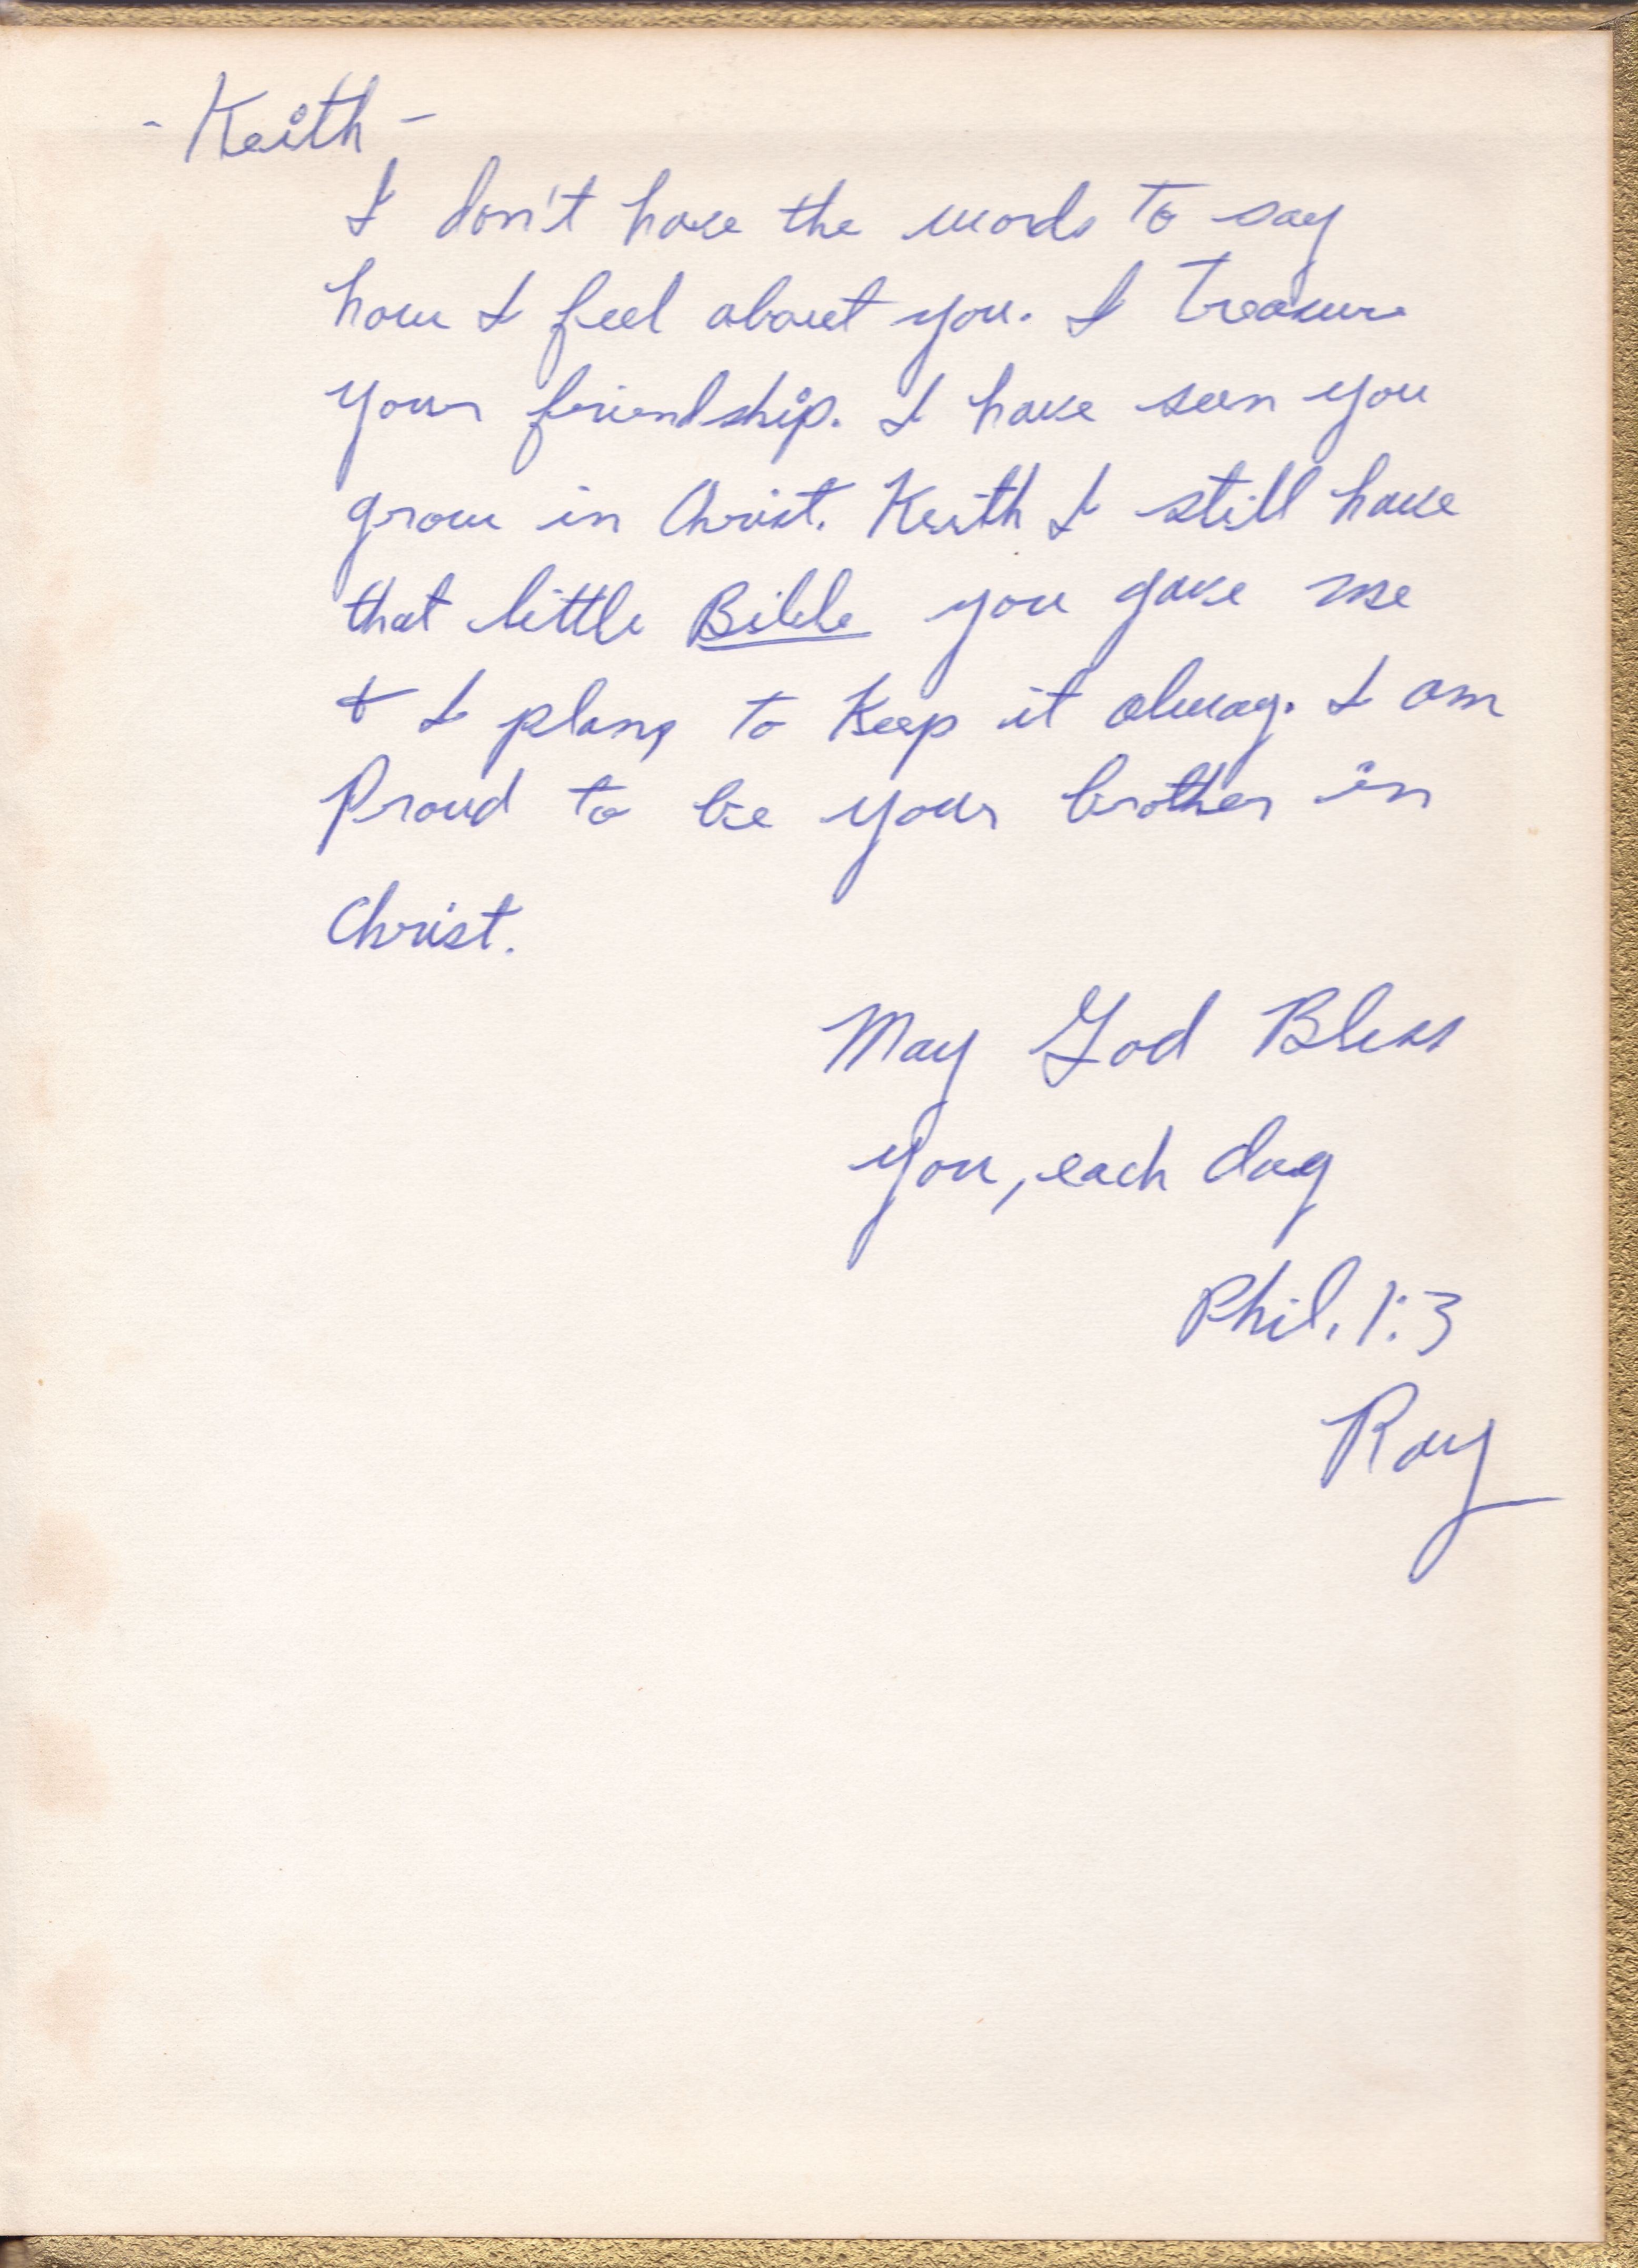 - Keith -
I don't have the words to say
how I feel about you. I treasure
your friendship. I have seen you
grow in Christ. Keith I still have
that little Bible you gave me
+ I plang to Keep it alway. I am
Proud to be your brother in
Christ.
May God Bless
you, each day
Phil. 1:3
Ray